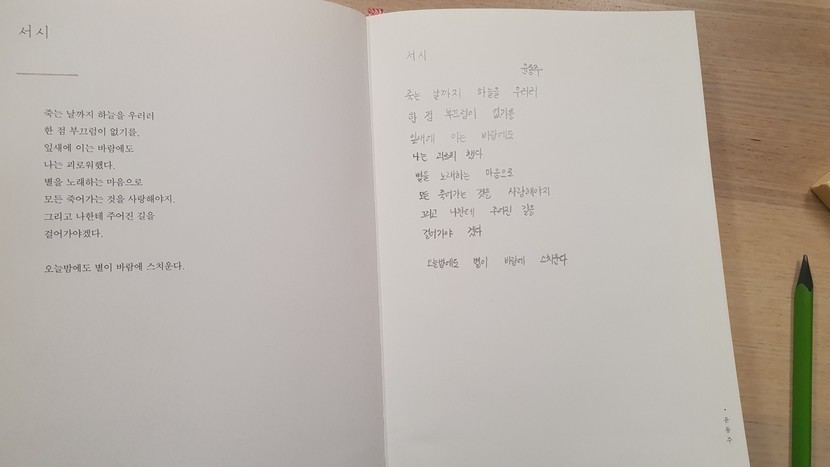 서시
죽는 날까지 하늘을 우러러
한 점 부끄럼이 없기를,
잎새에 이는 바람에도
나는 괴로워했다.
별을 노래하는 마음으로
모든 죽어가는 것을 사랑해야지.
그리고 나한테 주어진 길을
걸어가야겠다.
오늘밤에도 별이 바람에 스치운다.
서시
윤동주
죽는 날까지 하늘을 우러러
한 점 부끄럼이 없기를
잎새에 이는 바람에도
나는 괴로워 했다
별을 노래하는 마음으로
모든 죽어가는 것을 사랑해야지
그리고 나한테 주어진 길을
걸어가야 겠다
오늘밤에도 별이 바람에 스치운다
·윤동주